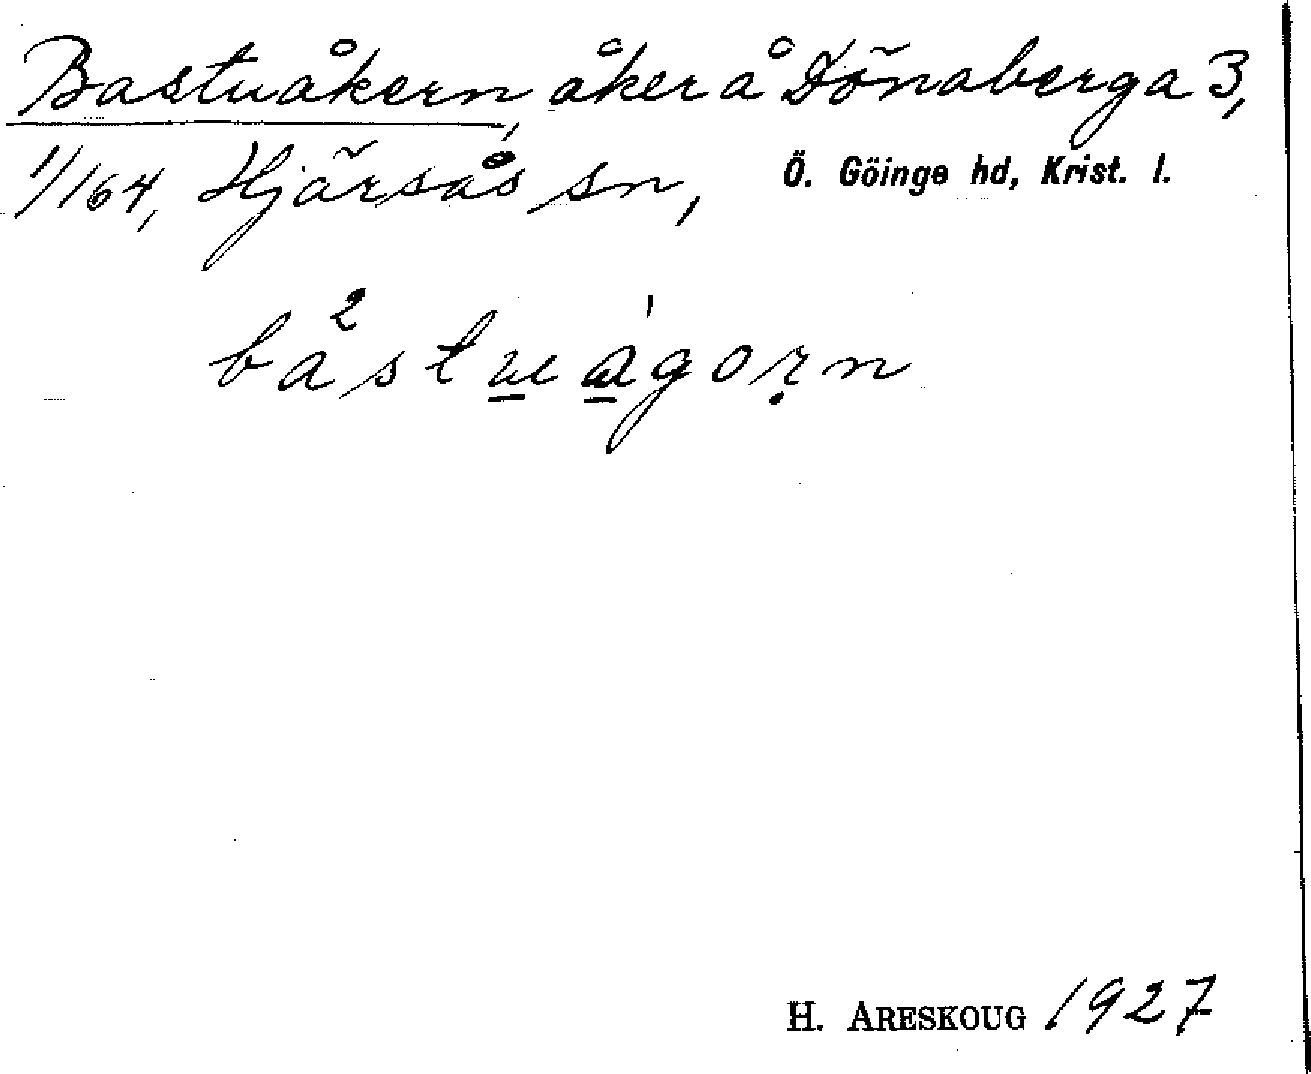 Bastuåkern, åker å Dönaberga 3,
1/164, Hjärsås sn, Ö. Göinge hd, Krist. l.
H. ARESKOUG 1927